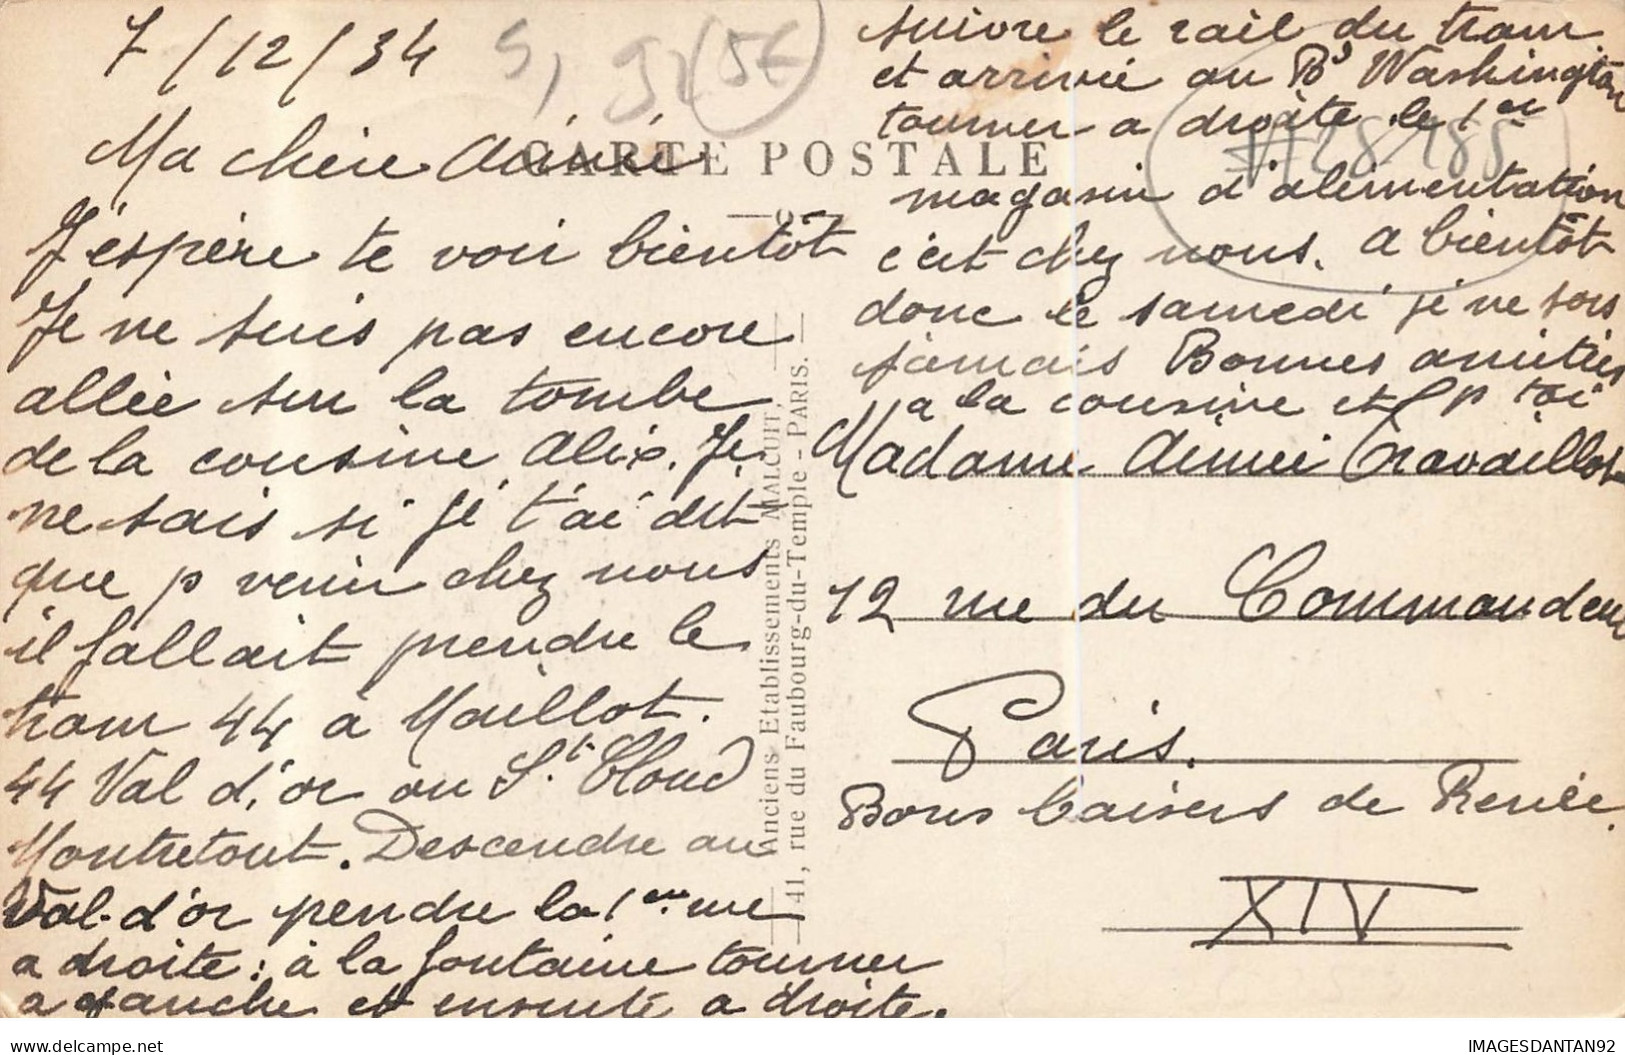 7/12/34
5, 92 (5€)
CARTE POSTALE
Ma chère Aimée
J'espère te voir bientôt
Je ne suis pas encore
allée sur la tombe
de la cousine Alix. Je
ne sais si je t'ai dit
que p venir chez nous
il fallait prendre le
tram 44 à Maillot.
44 Val d'or ou St Cloud
Montretout. Descendre au
Val-d'or prendre la 1ère rue
a droite : à la fontaine tourner
a gauche et ensuite a droite.
suivre le rail du tram
et arrivée au Bd Washington
tourner a droite le 1er
magasin d'alimentation
c'est chez nous. a bientôt
donc le samedi je ne sors
jamais Bonnes amitiés
a la cousine et p toi
Madame Aimée Travaillot
12 rue du Commandeur
Paris.
Bons baisers de Renée.
XIV
Anciens Etablissements MALCUIT.
41, rue du Faubourg-du-Temple - PARIS.
IMAGESDANTAN92